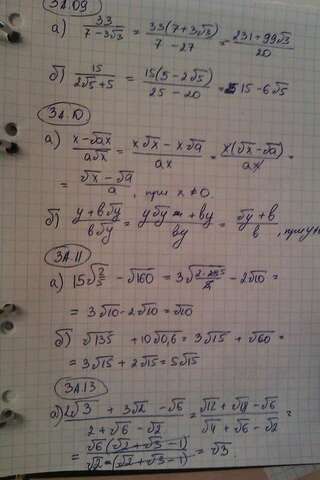 34.09
а) 33 / (7 - 3√3) = 33(7 + 3√3) / (7 - 27) = (231 + 99√3) / 20
б) 15 / (2√5 + 5) = 15(5 - 2√5) / (25 - 20) = 15 - 6√5
34.10
а) (x - √ax) / (a√x) = (x√x - x√a) / (ax) = x(√x - √a) / (ax) =
= (√x - √a) / a, при x ≠ 0.
б) (y + b√y) / (b√y) = (y√y + by) / (by) = (√y + b) / b, при y
34.11
а) 15√(2/5) - √160 = 3√(2·25·5 / 5) - 2√10 =
= 3√10 - 2√10 = √10
б) √135 + 10√0,6 = 3√15 + √60 =
= 3√15 + 2√15 = 5√15
34.13
а) (2√3 + 3√2 - √6) / (2 + √6 - √2) = (√12 + √18 - √6) / (√4 + √6 - √2) =
= √6(√2 + √3 - 1) / √2(√2 + √3 - 1) = √3.